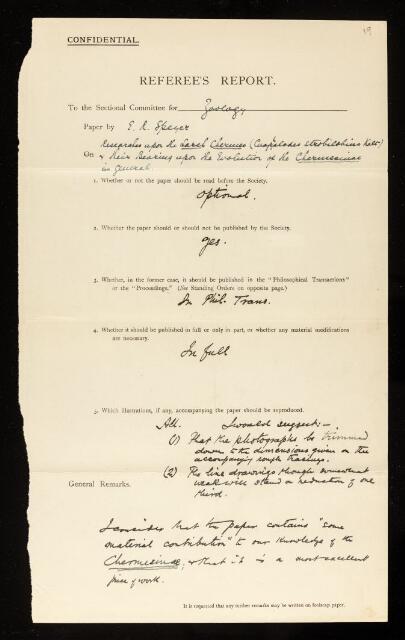 19
CONFIDENTIAL.
REFEREE'S REPORT.
To the Sectional Committee for Zoology
Paper by E. R. Speyer
Researches upon the Larch Chermes (Cnaphalodes strobilobius Kalt.)
On & their Bearing upon the Evolution of the Chermesinae
in general
1. Whether or not the paper should be read before the Society.
Optional.
2. Whether the paper should or should not be published by the Society.
Yes.
3. Whether, in the former case, it should be published in the "Philosophical Transactions"
or the "Proceedings." (See Standing Orders on opposite page.)
In Phil. Trans.
4. Whether it should be published in full or only in part, or whether any material modifications
are necessary.
In full
5. Which illustrations, if any, accompanying the paper should be reproduced.
All. I would suggest:—
(1) That the photographs be trimmed
down to the dimensions given on the
accompanying rough tracings.
(2) The line drawings though somewhat
weak will stand a reduction of one
third.
General Remarks.
I consider that the paper contains "some
material contribution" to our knowledge of the
Chermesinae, & that it is a most excellent
piece of work.
It is requested that any further remarks may be written on foolscap paper.